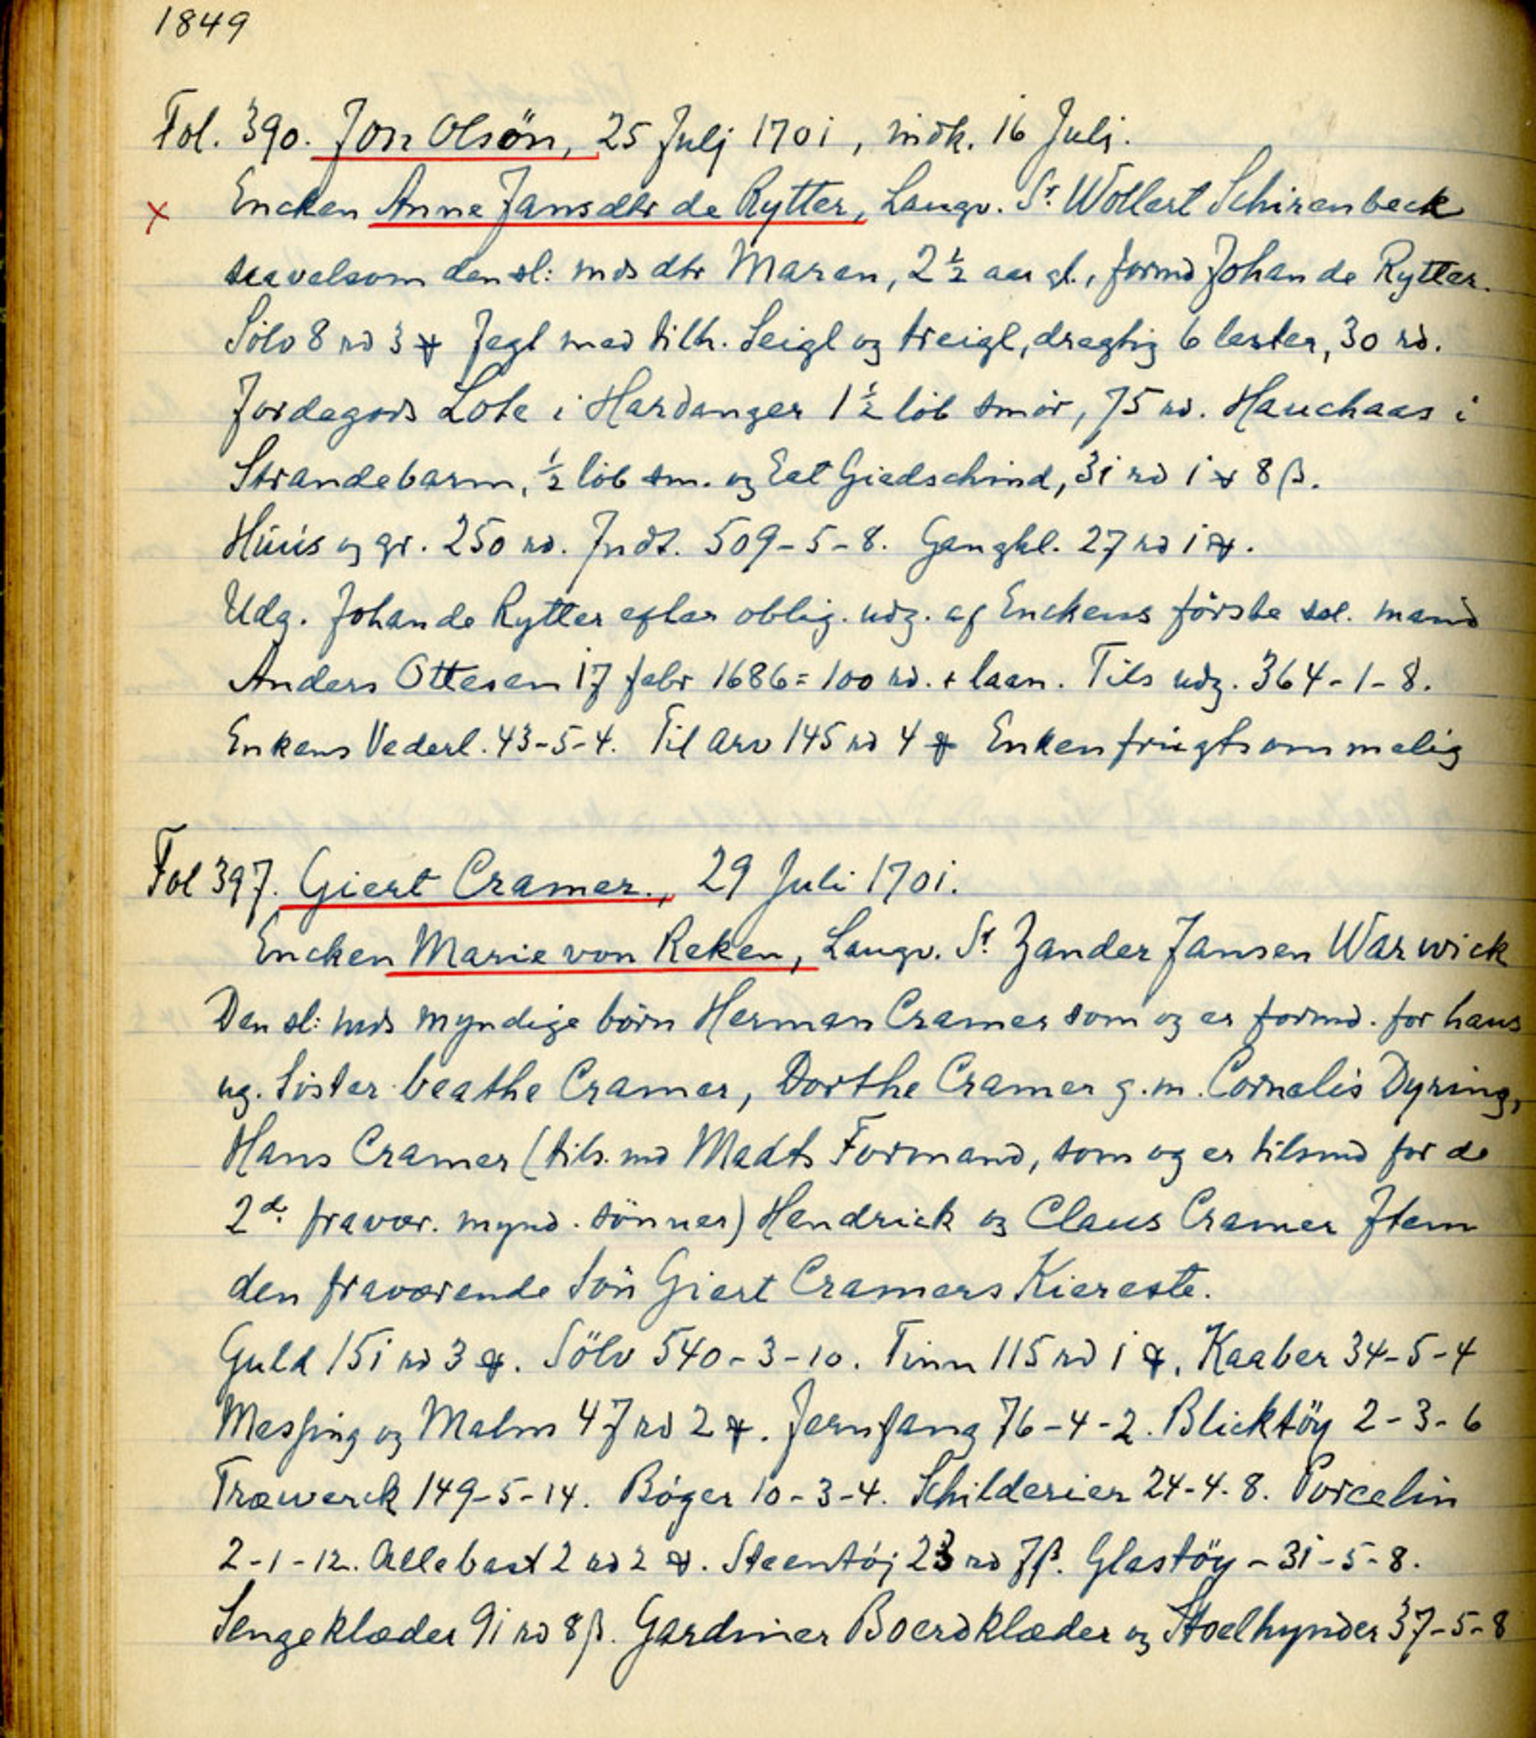 1849
Fol. 390. Jon Olsön, 25 Julj 1701, indk. 16 Juli.
x Encken Anne Jansdtr de Rytter, Laugv. Sr. Wollert Schirenbeck
saavelsom den sl: mds dtr Maren, 2 1/2 aar gl., formd Johan de Rytter.
Sölv 8 rd 3 ꝟ Jegt med tilh. Seigl og treigl, dregtig 6 lester, 30 rd.
Jordegods Lote i Hardanger 1 1/2 löb smör, 75 rd. Hauchaas i
Strandebarm, 1/2 löb sm. og Eet Giedschind, 31 rd 1 ꝟ 8 β.
Húús og gr. 250 rd. Indt. 509-5-8. Gangkl. 27 rd 1 ꝟ.
Udg. Johan de Rytter efter oblig. udg. af Enckens förste sal. mand
Anders Ottesen 17 febr 1686 = 100 rd. + laan. Tils udg. 364-1-8.
Enkens Vederl. 43-5-4. Til Arv 145 rd 4 ꝟ Enken frúgtsommelig
Fol 397. Giert Cramer., 29 Juli 1701.
Encken Marie von Reken, Laugv. Sr. Zander Jansen Warwick
Den sl: mds myndige börn Herman Cramer som og er formd. for hans
ug. Söster beathe Cramer, Dorthe Cramer g.m. Cornelis Dyring,
Hans Cramer (tils. md Madts Formand, som og er tilsmd for de
2de fravær. mynd. sönner) Hendrick og Claus Cramer Item
den fraværende Sön Giert Cramers Kiereste.
Guld 151 rd 3 ꝟ. Sölv 540-3-10. Tinn 115 rd 1 ꝟ. Kaaber 34-5-4
Messing og Malm 47 rd 2 ꝟ. Jernfang 76-4-2. Blicktöy 2-3-6
Træwerck 149-5-14. Böger 10-3-4. Schilderier 24-4-8. Porcelin
2-1-12. Allebast 2 rd 2 ꝟ. Steentöj 23 rd 7 β. Glastöy - 31-5-8.
Sengeklæder 91 rd 8 β. Gardiner Boerdklæder og Stoelhynder 37-5-8